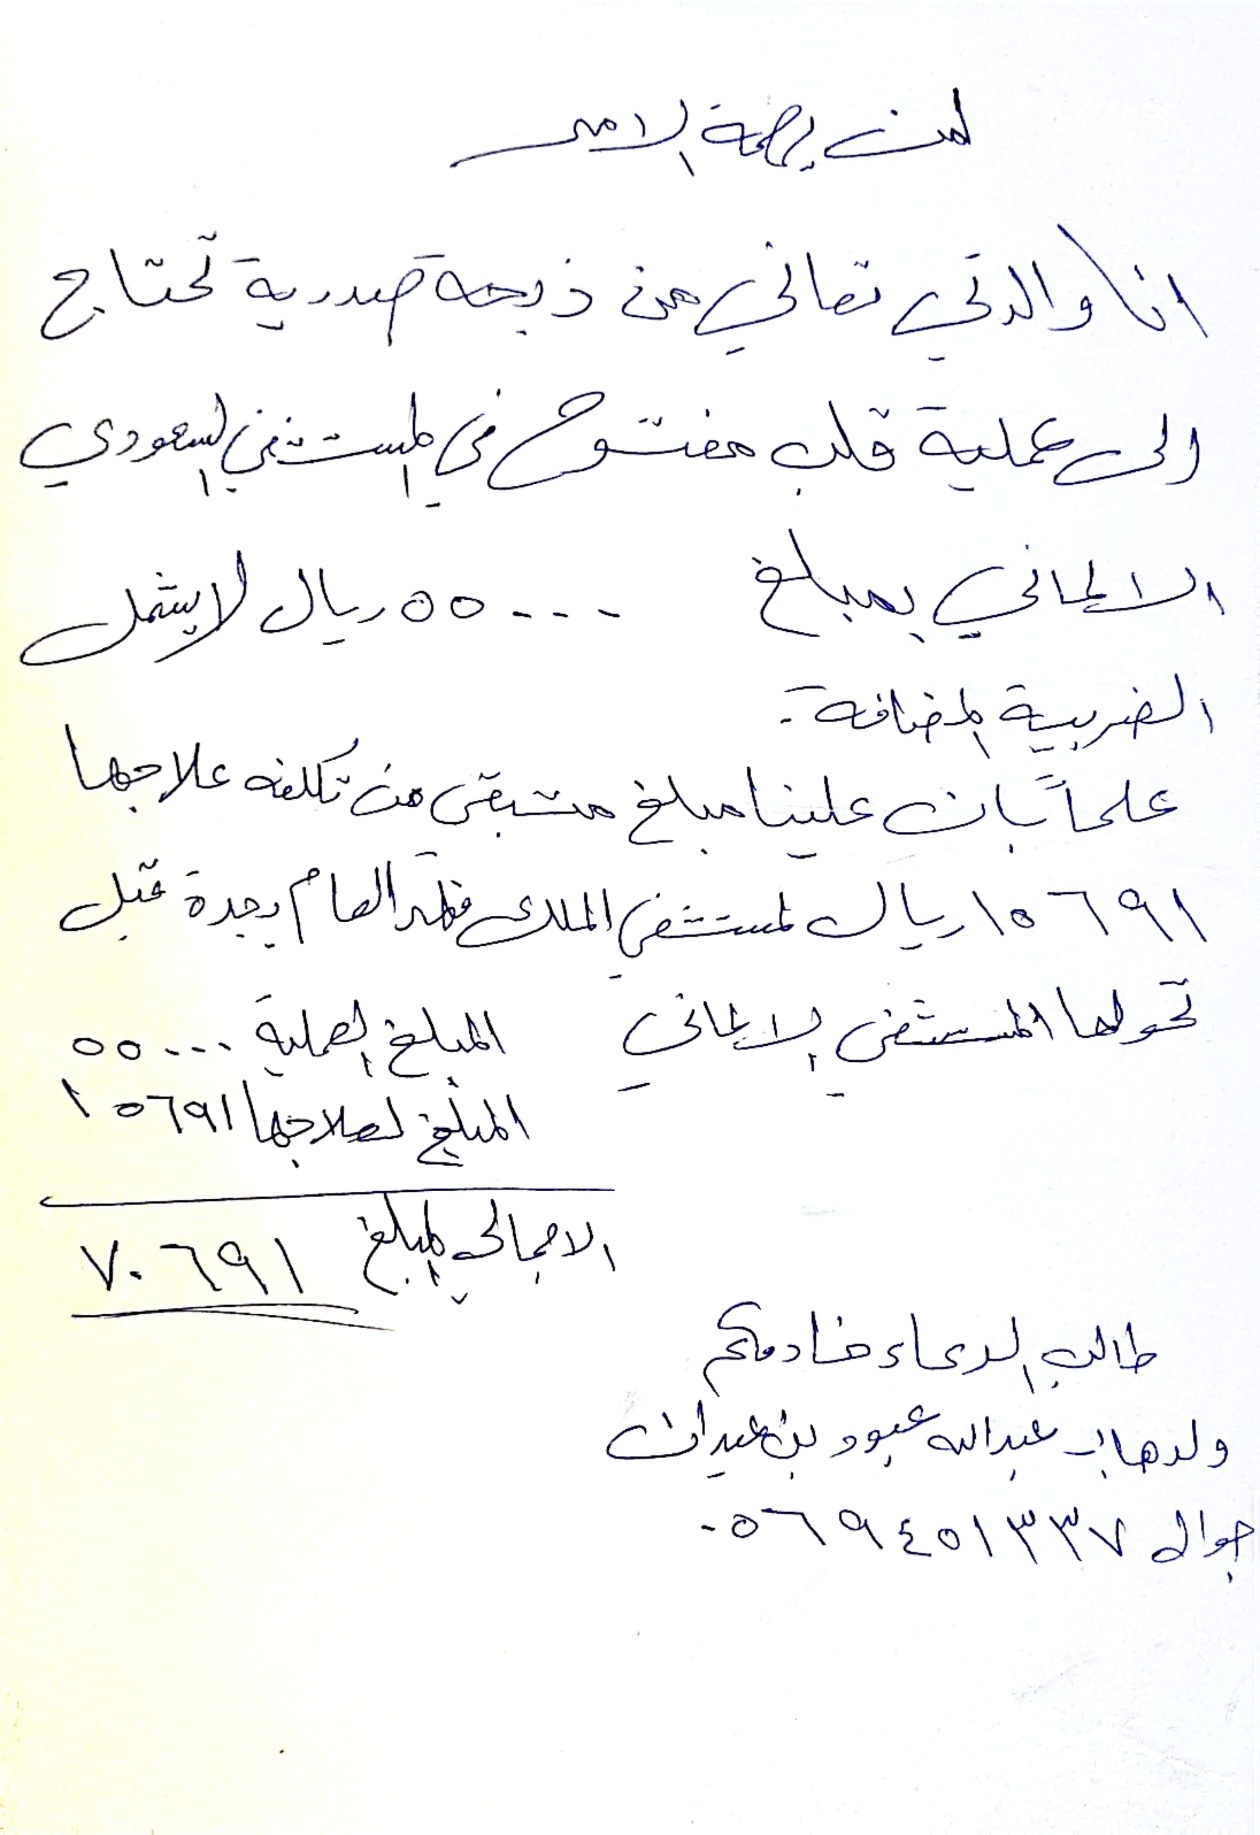 لمن يهمة الامر
انا والدتي تعاني من ذبحه صدرية تحتاج
الى عملية قلب مفتوح في المستشفى السعودي
الالماني بمبلغ ٥٥٠٠٠ ريال لا يشمل
الضريبة المضافة .
علماً بان علينا مبلغ متبقى من تكلفه علاجها
١٥٦٩١ ريال لمستشفى الملك فهد العام بجدة قبل
تحولها المستشفى الالماني
المبلغ لعملية ٥٥٠٠٠
المبلغ لعلاجها ١٥٦٩١
الاجمالي المبلغ ٧٠٦٩١
طالب الدعاء خادمكم
ولدها / عبدالله عبود بن عيدان
جوال ٠٥٦٩٤٥١٣٣٧